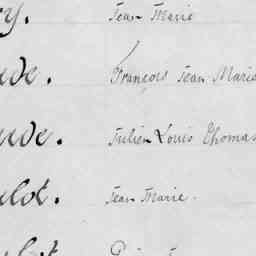 y. Jean Marie
ve. François Jean Marie
uve. Julien Louis Thomas
lot. Jean Marie.